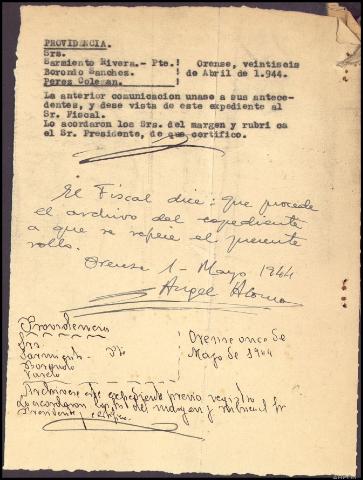 PROVIDENCIA.
Srs.
Sarmiento Rivera.- Pte.! Orense, veintiseis
Borondo Sanchez. ! de Abril de 1.944.
Perez Coleman. !
La anterior comunicacion unase a sus antece-
dentes, y dese vista de este expediente al
Sr. Fiscal.
Lo acordaron los Srs. del margen y rubri ca
el Sr. Presidente, de que certifico.
El Fiscal dice: que procede
el archivo del expediente
a que se refiere el presente
rollo.
Orense 1 - Mayo 1944
Angel
Providencia
Srs. Orense once de
Sarmiento - Pte Mayo de 1944
Borondo
Varela
Archivese este expediente previo registro
Lo acordaron los Srs del margen y rubrica el Sr
Presidente, certifico.